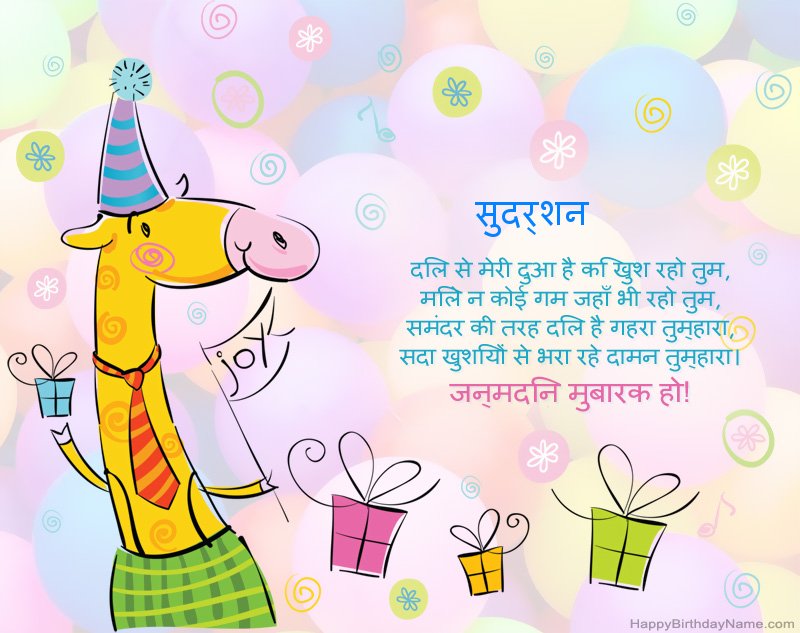 सुदर्शन
दिल से मेरी दुआ है कि खुश रहो तुम,
मिले न कोई गम जहाँ भी रहो तुम,
समंदर की तरह दिल है गहरा तुम्हारा,
सदा खुशियों से भरा रहे दामन तुम्हारा।
जन्मदिन मुबारक हो!
joy
HappyBirthdayName.com